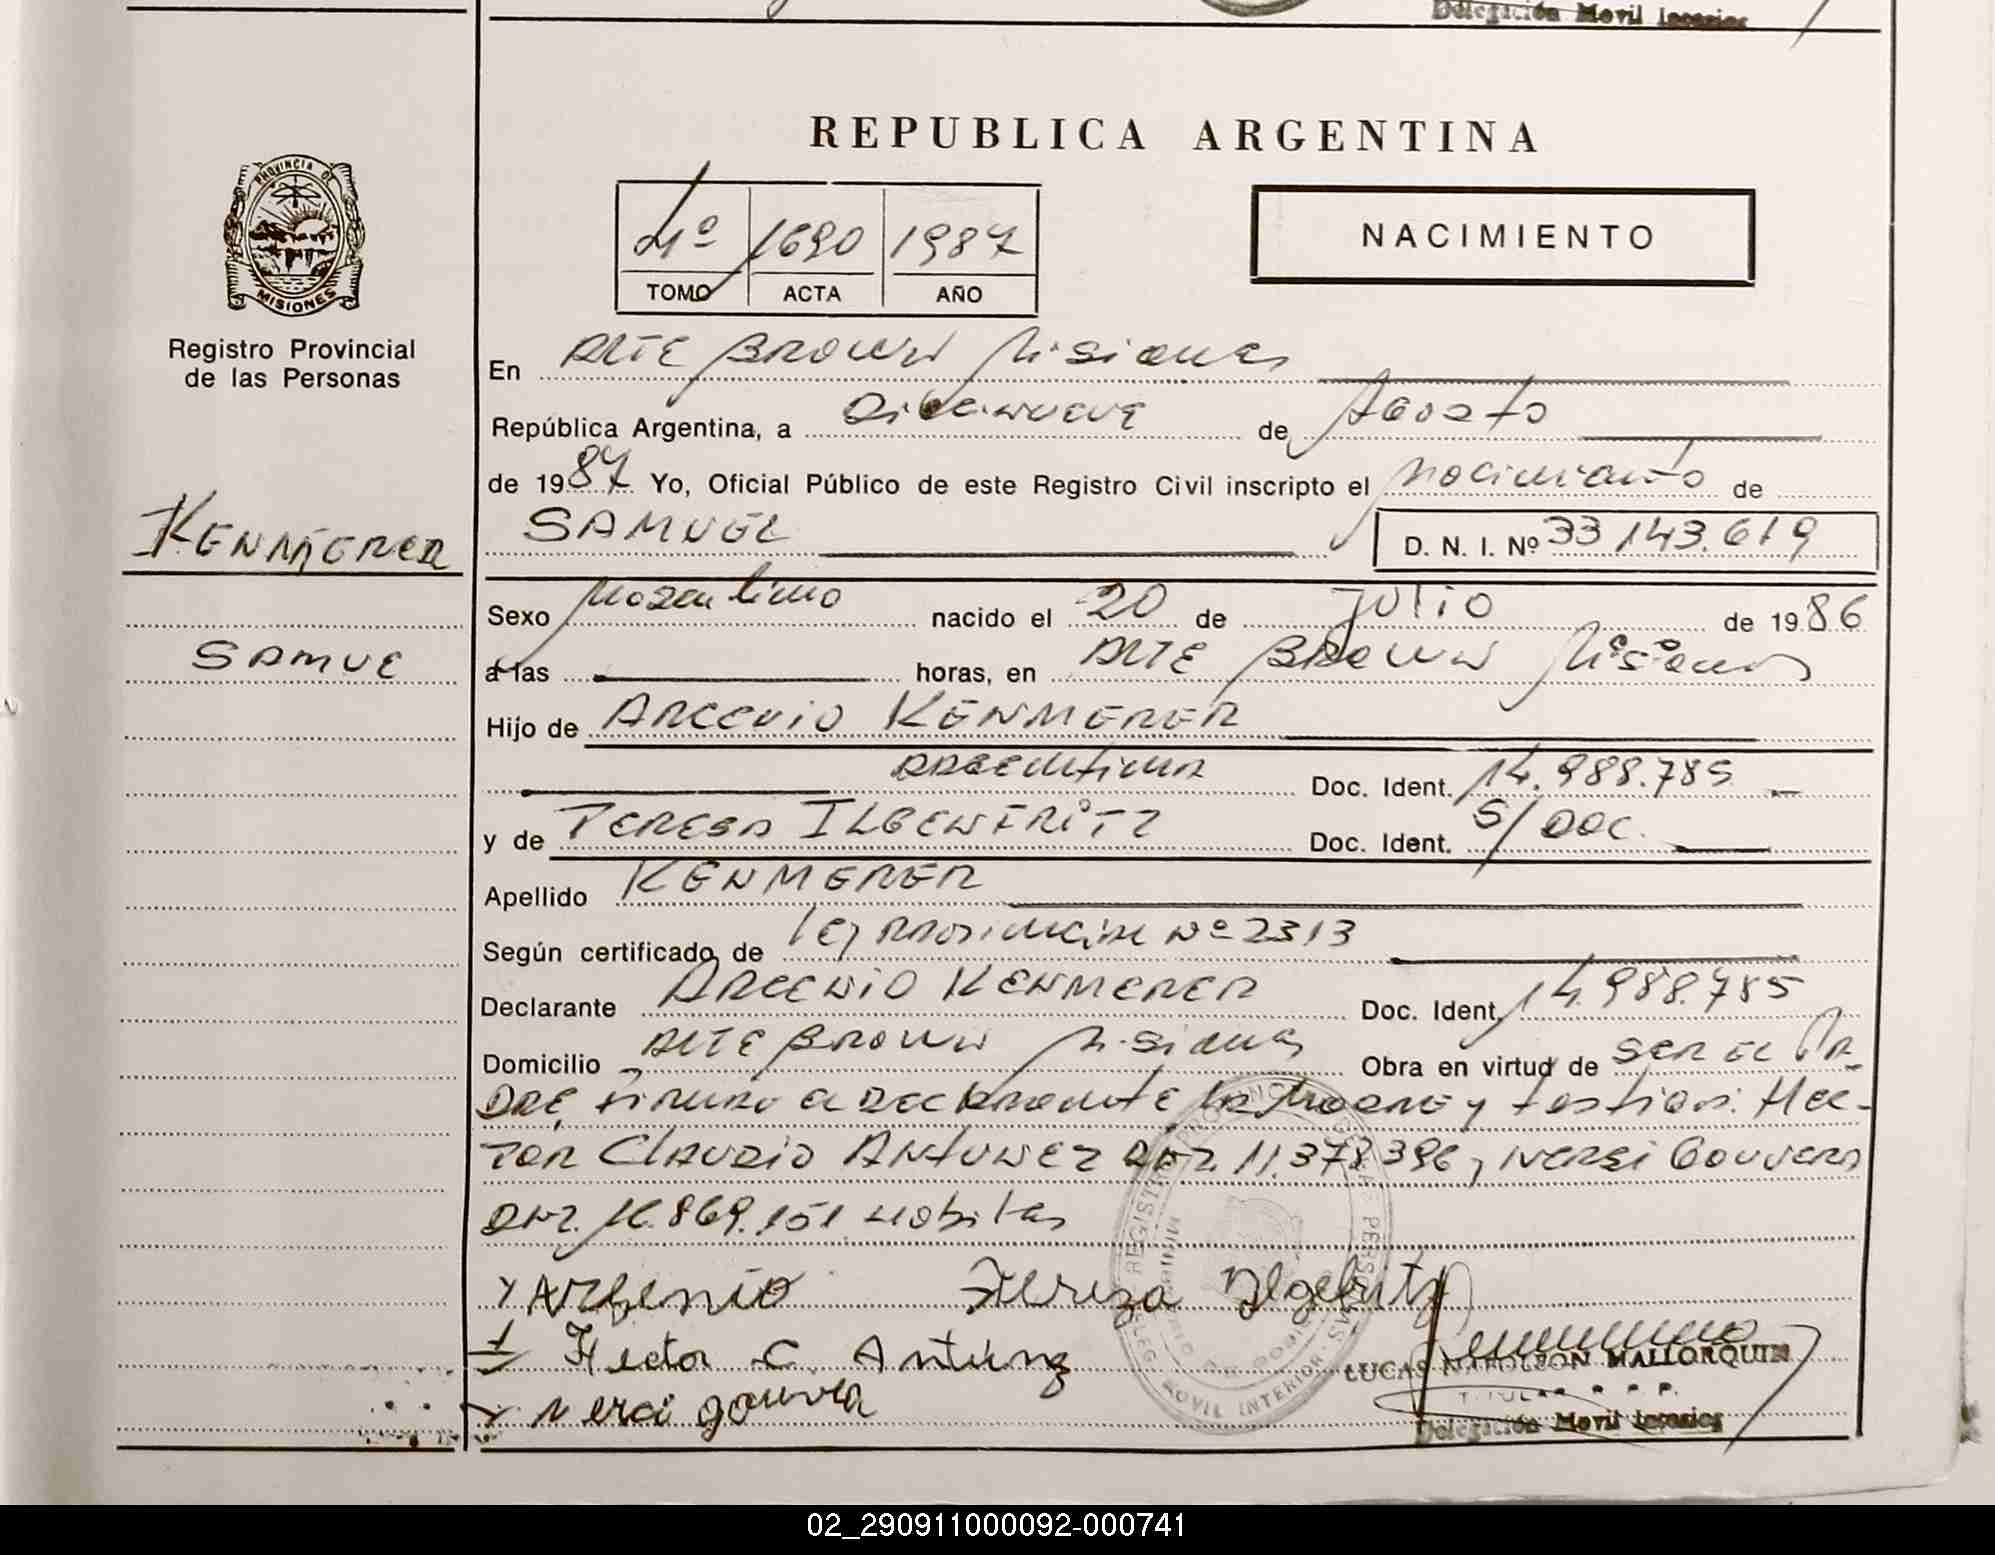 Delegación Movil Interior
REPUBLICA ARGENTINA
PROVINCIA DE
MISIONES
4º 1690 1987
TOMO ACTA AÑO
NACIMIENTO
Registro Provincial
de las Personas
En ALTE BROWN Misiones
República Argentina, a Diecinueve de Agosto
de 1987 Yo, Oficial Público de este Registro Civil inscripto el Nacimiento de
KENMERER
SAMUEL D. N. I. Nº 33.143.619
Sexo Masculino nacido el 20 de Julio de 1986
SAMUE
a las horas, en ALTE BROWN Misiones
Hijo de ARCENIO KENMERER
ARGENTINA Doc. Ident. 14.988.785
y de TERESA ILGENFRITZ Doc. Ident. S/DOC.
Apellido KENMERER
Según certificado de Ley PROVINCIAL Nº 2313
Declarante ARCENIO KENMERER Doc. Ident. 14.988.785
Domicilio ALTE BROWN Misiones Obra en virtud de SER EL PA-
DRE, FIRMAN el DECLARANTE, la MADRE y testigos: HEC-
TOR CLAUDIO ANTUNEZ DNI. 11.378.396, NERSI GOUVERA
DNI. 16.869.151 Habiles
Y Arsenio Tereza Ilgefritz
Hector C Antunz
LUCAS NAPOLEON MALLORQUIN
TITULAR R. P. P.
Nerci gouvea
Delegación Movil Interior
02_290911000092-000741